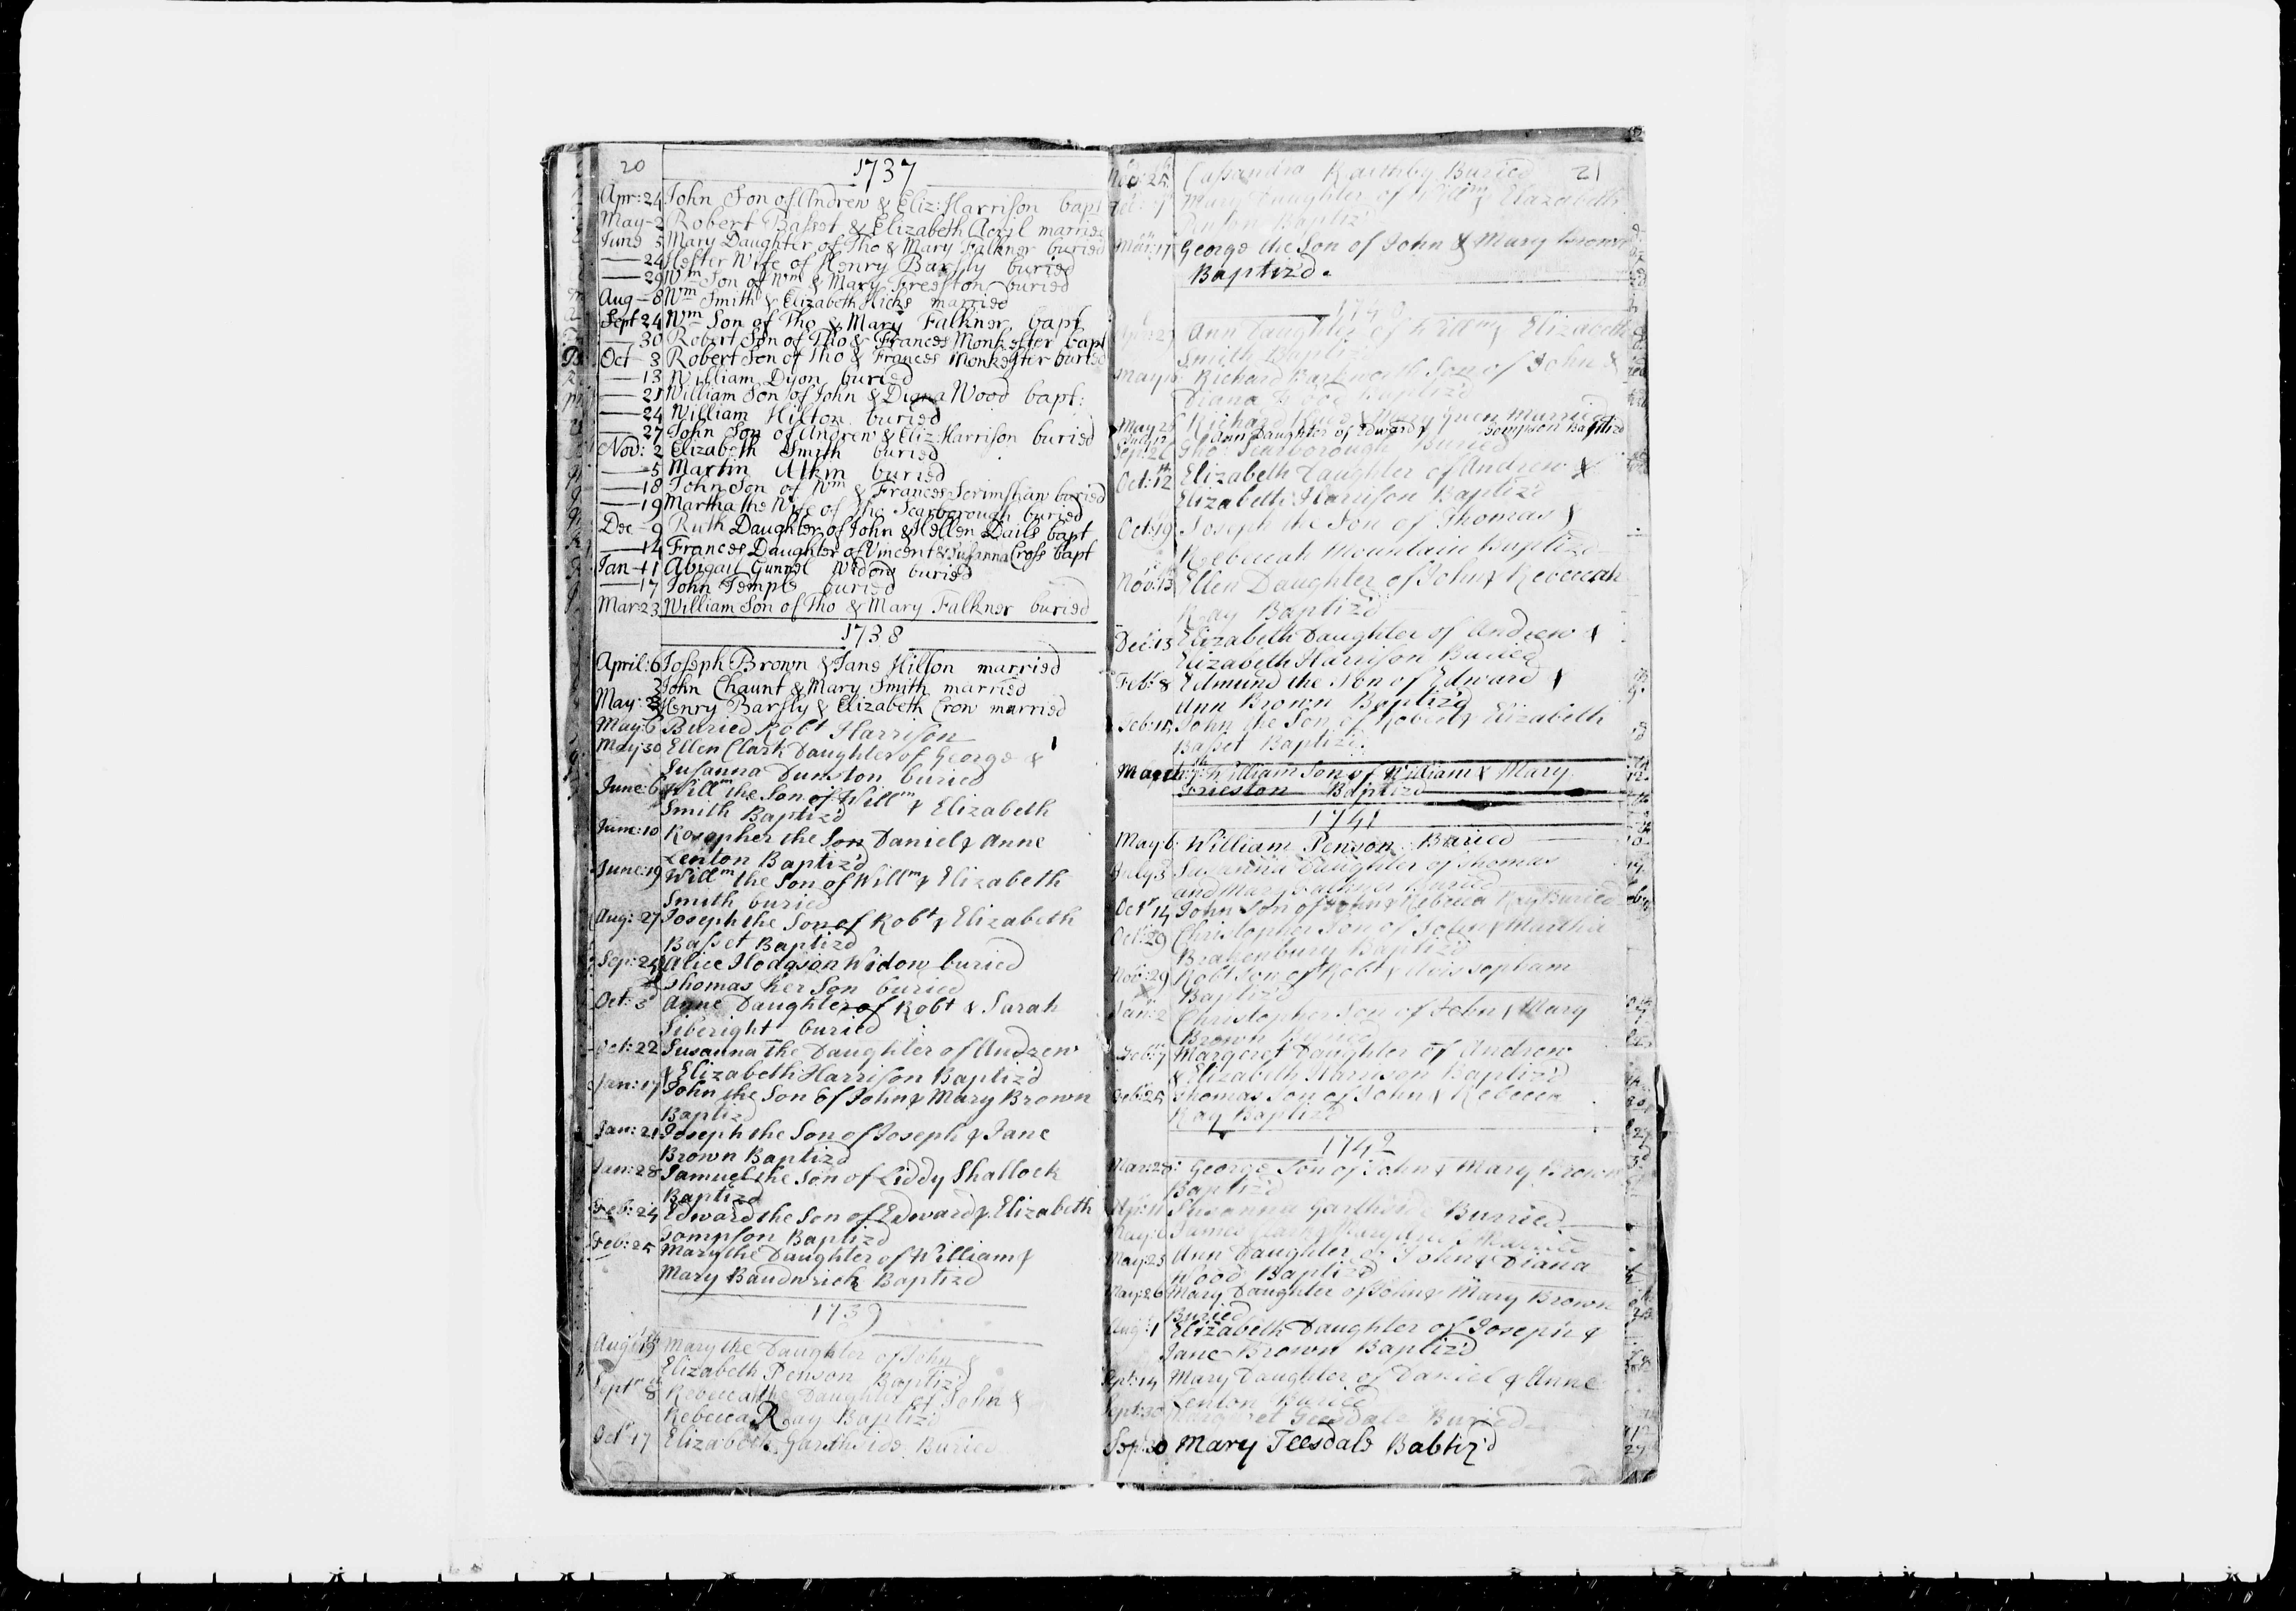 20
1737
Apr: 24 John Son of Andrew & Eliz: Harrison bapt
May-2 Robert Basset & Elizabeth Acril married
June 5 Mary Daughter of Tho & Mary Falkner buried
—24 Hester Wife of Henry Barsly buried
—29 Wm Son of Wm & Mary Freeston buried
Aug-8 Wm Smith & Elizabeth Hicks married
Sept 24 Wm Son of Tho & Mary Falkner bapt
—30 Robert Son of Tho & Frances Monkester bapt
Oct 3 Robert Son of Tho & Frances Monkester buried
—13 William Dyon buried
—21 William Son of John & Diana Wood bapt:
—24 William Hilton buried
—27 John Son of Andrew & Eliz: Harrison buried
Nov: 2 Elizabeth Smith buried
—5 Martin Atkin buried
—18 John Son of Wm & Frances Scrimshaw buried
—19 Martha the Wife of Tho Scarborough buried
Dec-9 Ruth Daughter of John & Hellen Dails bapt
—14 Frances Daughter of Vincent & Susanna Cross bapt
Jan-11 Abigail Gunnel Widow buried
—17 John Temple buried
Mar 23 William Son of Tho & Mary Falkner buried
1738
April: 6 Joseph Brown & Jane Hilson married
John Chaunt & Mary Smith married
May: Henry Barsly & Elizabeth Crow married
May: 6 Buried Robt Harrison
May: 30 Ellen Clark Daughter of George &
Susanna Dunston buried
June: 6 Willm the Son of Willm & Elizabeth
Smith Baptiz'd
June: 10 Rosepher the Son Daniel & Anne
Lenton Baptiz'd
June: 19 Willm the Son of Willm & Elizabeth
Smith buried
Aug: 27 Joseph the Son of Robt & Elizabeth
Basset Baptiz'd
Sep: 24 Alice Hodgson Widow buried
Thomas her Son buried
Oct: 3d Anne Daughter of Robt & Sarah
Siberight buried
Oct: 22 Susanna the Daughter of Andrew
& Elizabeth Harrison Baptiz'd
Jan: 17 John the Son of John & Mary Brown
Baptiz'd
Jan: 21 Joseph the Son of Joseph & Jane
Brown Baptiz'd
Jan: 28 Samuel the Son of Liddy Shallock
Baptiz'd
Feb: 24 Edward the Son of Edward & Elizabeth
Sompson Baptiz'd
Feb: 25 Mary the Daughter of William &
Mary Baudwrick Baptiz'd
1739
Aug: 19 Mary the Daughter of John &
Elizabeth Penson Baptiz'd
Septr 8 Rebecca the Daughter of John &
Rebecca Ray Baptiz'd
Octr 17 Elizabeth Garthside Buried
21
Nov: 25 Cassandra Raithby Buried
Mary Daughter of Willm & Elizabeth
Baptiz'd
Mar: 17 George the Son of John & Mary Brown
Baptiz'd.
1740
Ann Daughter of Willm & Elizabeth
Smith Baptiz'd
May Richard Barkworth Son of John &
Diana Wood Baptiz'd
May 25 Richard & Mary Green Married
Ann Daughter of Edward & Sompson Baptiz'd
Sept: 26 Tho: Scarborough Buried
Oct: 12 Elizabeth Daughter of Andrew &
Elizabeth Harrison Baptiz'd
Oct: 19 Joseph the Son of Thomas &
Rebeccah Mountain Baptiz'd
Nov: 13 Ellen Daughter of John & Rebeccah
Ray Baptiz'd
Dec: 13 Elizabeth Daughter of Andrew &
Elizabeth Harrison Buried
Feb: 8 Edmund the Son of Edward &
Ann Brown Baptiz'd
Feb: 15 John the Son of Robert & Elizabeth
Basset Baptiz'd
March 7th William Son of William & Mary
Frieston Baptiz'd
1741
May: 6 William Penson Buried
July 3 Susanna Daughter of Thomas
and Mary Falkner Buried
Octr 14 John Son of John & Rebecca Ray Buried
Oct: 29 Christopher Son of John & Martha
Brakenbury Baptiz'd
Nov: 29 Robt Son of Robt & Topham
Baptiz'd
Jan: 2 Christopher Son of John & Mary
Brown Buried
Feb: 7 Margeret Daughter of Andrew
& Elizabeth Harrison Baptiz'd
Feb: 25 Thomas Son of John & Rebecca
Ray Baptiz'd
1742
Mar: 28: George Son of John & Mary Brown
Baptiz'd
Apr: 11 Susanna Garthside Buried
May: 6 James & Mary Married
May: 23 Ann Daughter of John & Diana
Wood Baptiz'd
May: 26 Mary Daughter of John & Mary Brown
Buried
Aug: 1 Elizabeth Daughter of Joseph &
Jane Brown Baptiz'd
Sept: 14 Mary Daughter of Daniel & Anne
Lenton Buried
Sept: 30 Margaret Teesdale Buried
Sep: 30 Mary Teesdale Babtiz'd